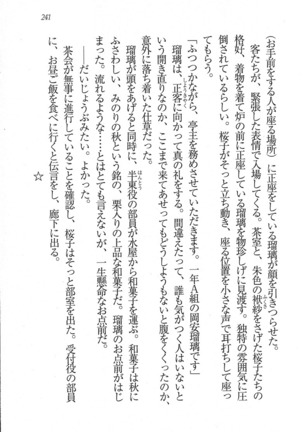 241
（お手前をする人が座る場所）に正座をしている瑠璃が顔を引きつらせた。
客たちが、緊張した表情で入場してくる。茶室と、朱色の袱紗をさげた桜子たちの
格好、着物を着て炉の前に正座している瑠璃を物珍しげに見渡す。独特の雰囲気に圧
倒されているらしい。桜子がそっと立ち動き、座る位置を小さな声で耳打ちして座っ
てもらう。
「ふつつかながら、亭主を務めさせていただきます。一年Ａ組の岡安瑠璃です」
瑠璃は、正客に向かって真の礼をする。間違えたって、誰も気がつく人はいないと
いう開き直りなのか、ここまで来てあせってもどうしようもないと腹をくくったのか、
意外に落ち着いた仕草だった。
瑠璃が頭をあげると同時に、半東役の部員が水屋から和菓子を運ぶ。和菓子は秋に
はんとう
ふさわしい、みのりの秋という銘の、栗入りの上品な和菓子だ。瑠璃のお点前がはじ
まった。流れるような……とはとても言えないが、一生懸命なお点前だ。
――だいじょうぶみたい。よかった。
茶会が無事に進行しているのを確認してから、桜子はそっと部室を出た。受付役の部員
に、お昼ご飯を食べに行くと伝言をし、廊下に出る。
☆